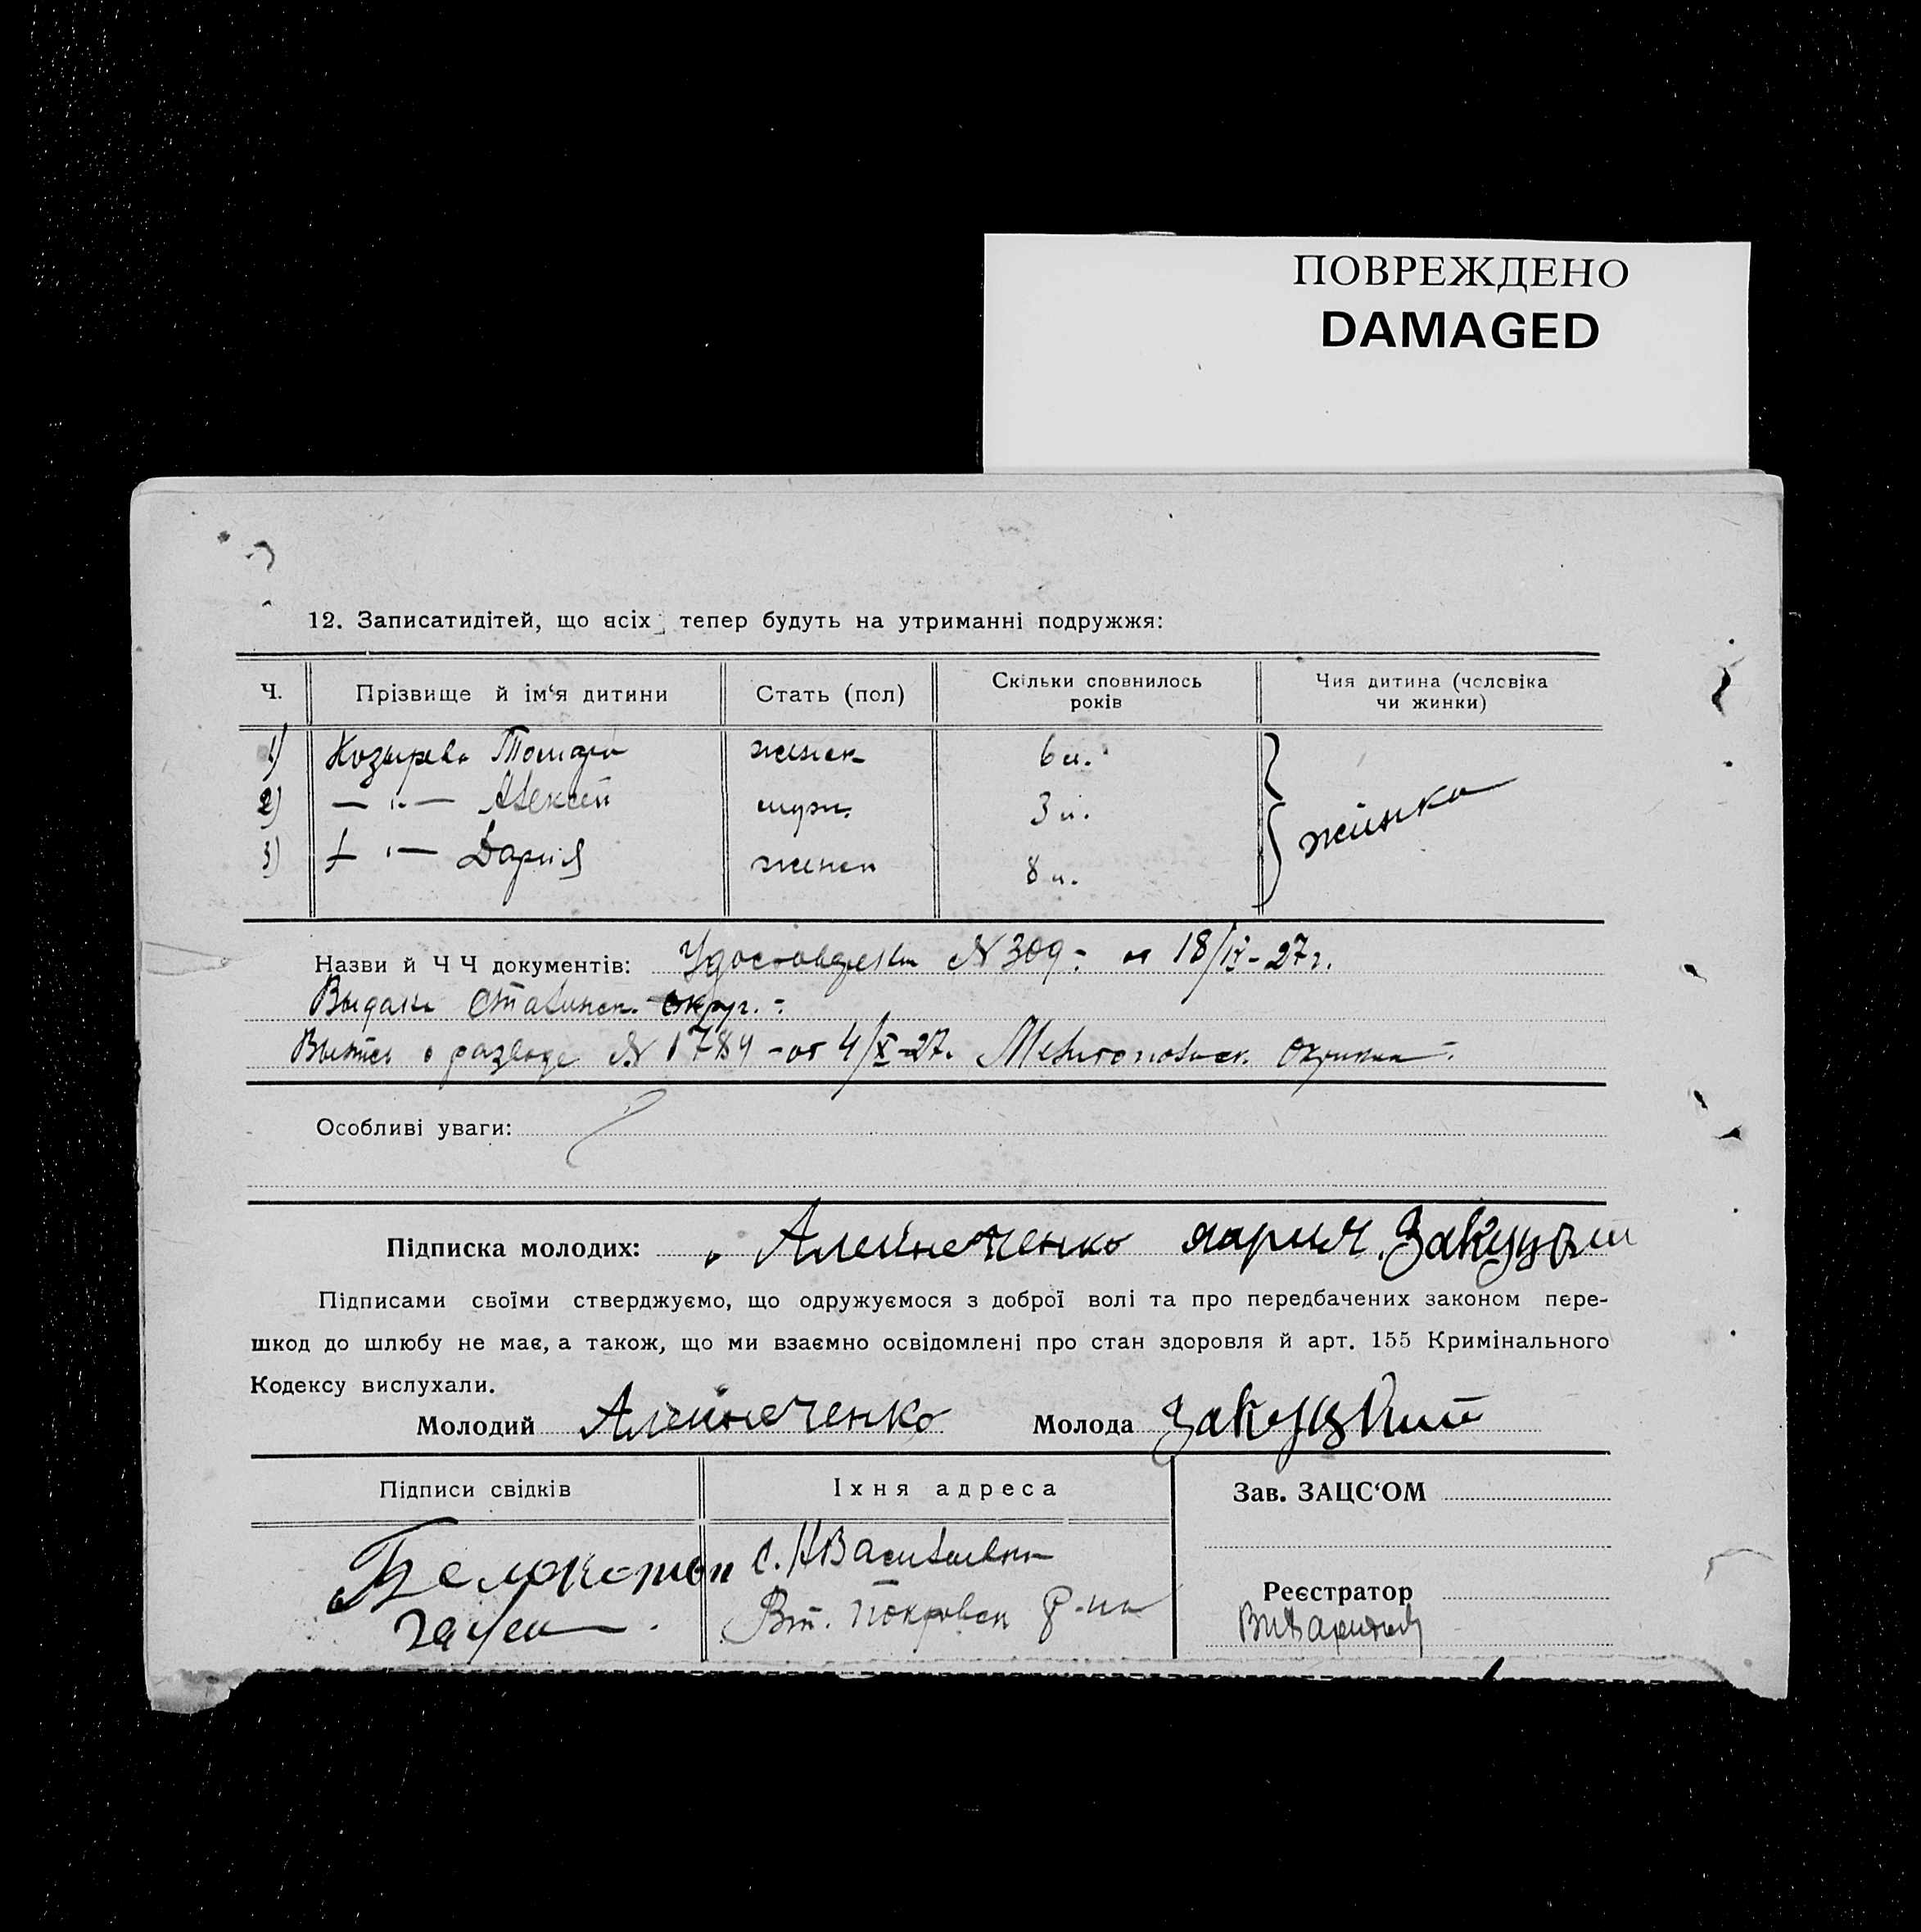 ПОВРЕЖДЕНО
DAMAGED
12. Записатидітей, що всіх тепер будуть на утриманні подружжя:
Ч. Прізвище й ім‘я дитини Стать (пол) Скільки сповнилось років Чия дитина (чоловіка чи жинки)
1) Козырева женск 6 л.
2) — " — Алексей муж. 3 л.
3) — " — Дария женск 8 л.
жінка
Назви й Ч Ч документів: N 309 от 18/IX-27 г.
Выдана Сталинск. окр.
Выпись о разводе N 1784 - от 4/X-27. Мелитопольск.
Особливі уваги:
Підписка молодих: Алейниченко Закуцкий
Підписами своїми стверджуємо, що одружуємося з доброї волі та про передбачених законом пере-
шкод до шлюбу не має, а також, що ми взаємно освідомлені про стан здоровля й арт. 155 Кримінального
Кодексу вислухали.
Молодий Алейниченко Молода Закуцкий
Підписи свідків Їхня адреса Зав. ЗАЦС‘ОМ
с. Васильевка
Покровск р-на
Реєстратор